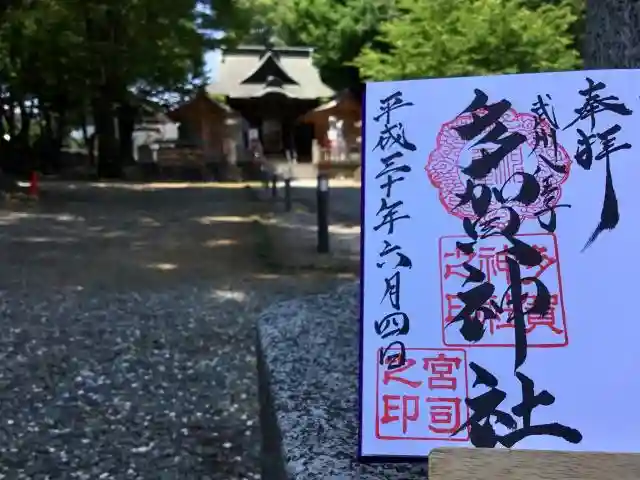 奉拝
武州八王子
多賀神社
多賀
神社
之印
平成三十年六月四日
宮司
之印